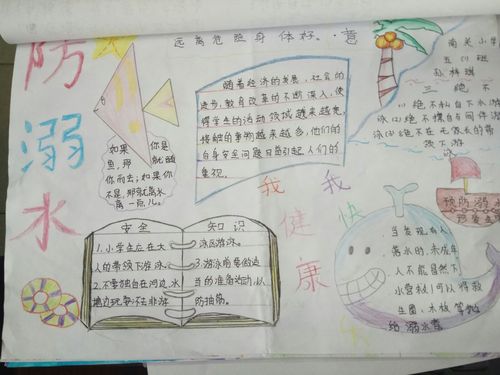 防溺水
远离危险身体好。意
南关小学
五(1)班
三绝不
(1)绝不私自下水游
泳(2)绝不擅自同伴游
泳(3)绝不在无家长的带
领下游
泳
随着经济的发展,社会的
进步,教育改革的不断深入,使
得学生的活动领域越来越宽,
接触的事物越来越多,他们的
自身安全问题日益引起人们的
重视。
如果你是
鱼,那就随
你而去;如果你
不是,那就离水
离一点儿。
我健康
我快乐
安全
1.小学生应在大
人的带领下游泳。
2.不要独自在河边、水
塘边玩耍,不去非游
知识
泳区游泳。
3.游泳前要做适
当的准备活动,以
防抽筋。
预防溺水
当发现有人
落水时,未成年
人不能冒然下
水营救,可以将救
生圈、木板等抛
给溺水者